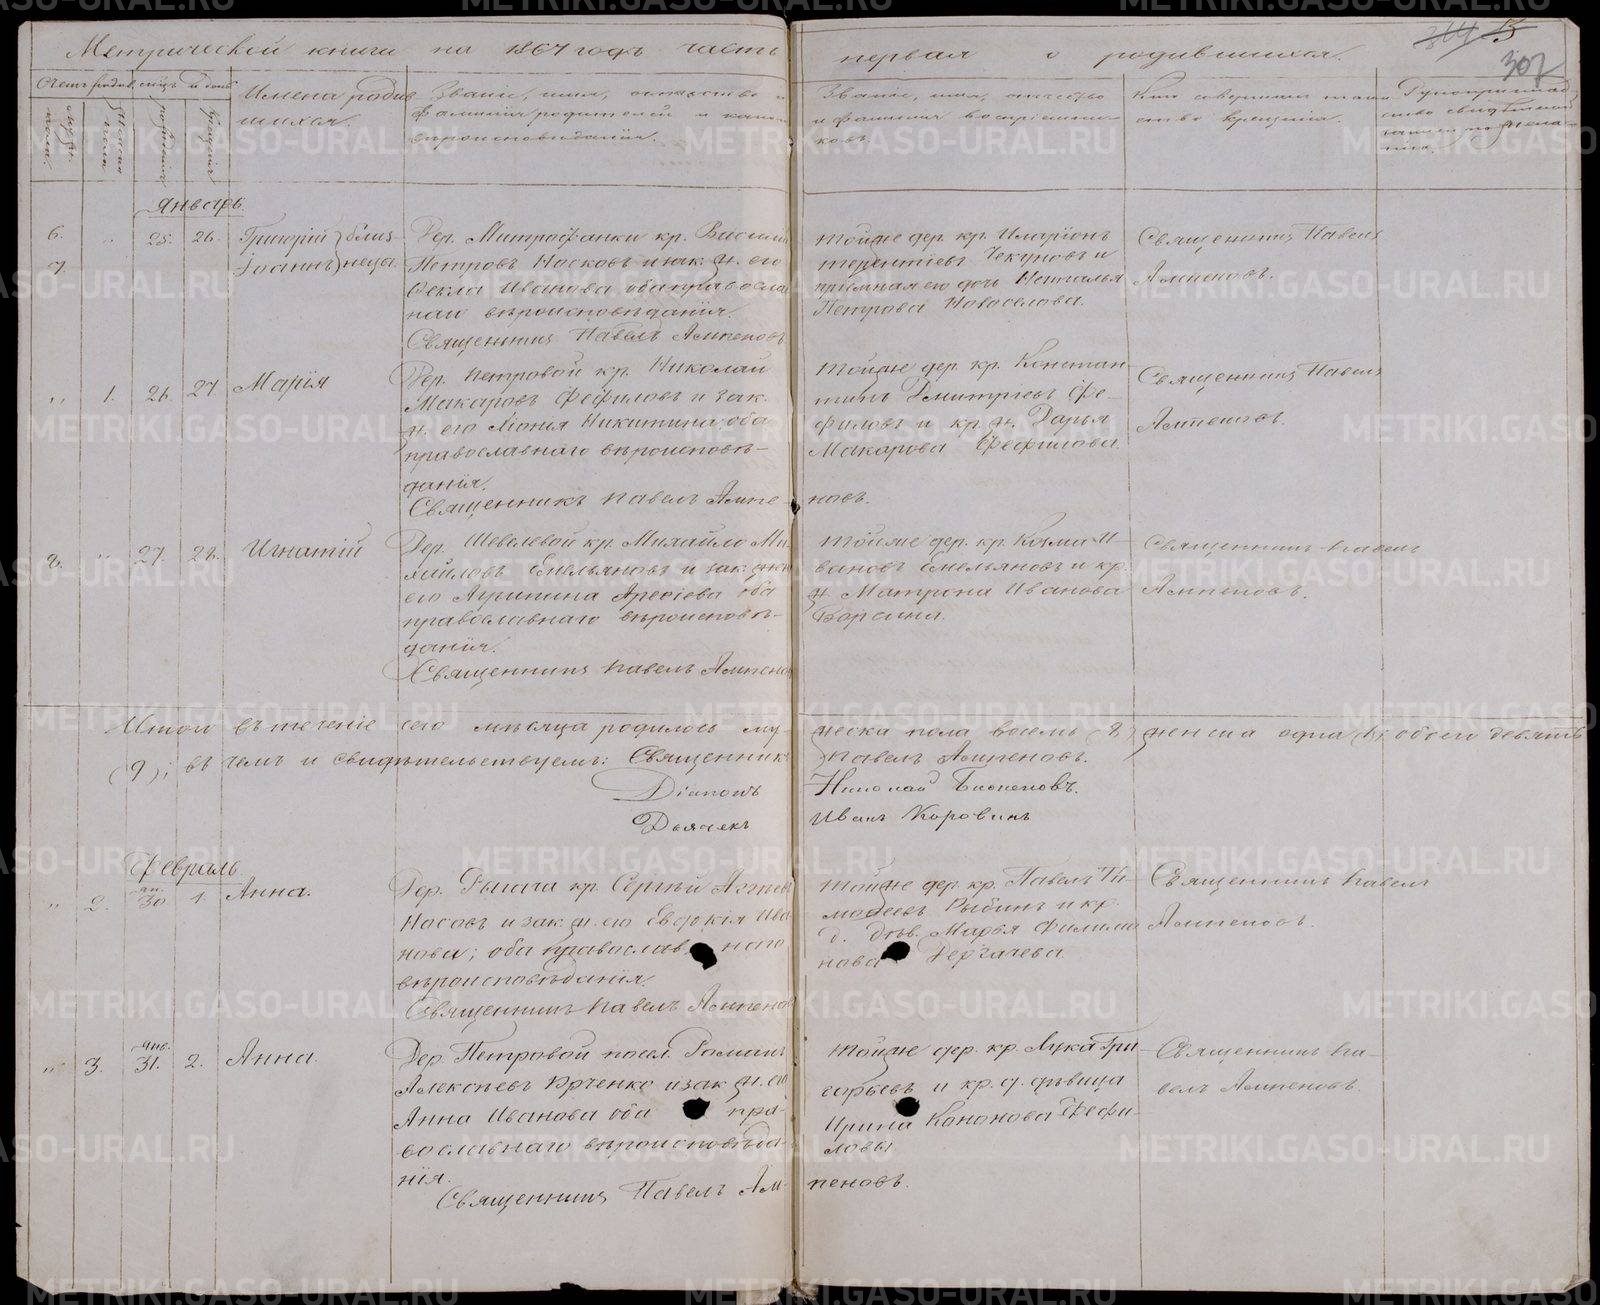 Метрической книги на 1867 годъ часть первая о родившихся.
307
Счетъ родив. мѣсяцъ и день
Имена родив
шихся.
Званіе, имя, отчество и
фамилія родителей и какого
вѣроисповѣданія.
Званіе, имя, отчество
и фамилія воспріемни-
ковъ.
Кто совершалъ таин
ство крещенія.
Рукоприклад
ство свидѣтелей
записи по жела-
нію.
мужес
женска
рожденія
крещенія
Январь
6. " 25. 26. Григорій близ-
7. Іоаннъ неца.
Дер. Митрофанки кр. Василій
Петровъ Носковъ и зак. ж. его
Ѳекла Иванова оба православ
наго вѣроисповѣданія.
Священникъ Павелъ
Тойже дер. кр. Иларіонъ
Терентіевъ Чекуновъ и
пріемная его дочь Наталья
Петрова Новоселова.
Священникъ Павелъ
" 1. 26. 27. Марія
Дер. Петровой кр. Николай
Макаровъ Фефиловъ и зак.
ж. его Никитина, оба
православнаго вѣроисповѣ-
данія.
Священникъ Павелъ
Тойже дер. кр. Констан-
тинъ Дмитріевъ Фе-
филовъ и кр. ж. Дарья
Макарова Фефилова.
Священникъ Павелъ
8. " 27. 28. Игнатій
Дер. Шевелевой кр. Михайло Ми-
хайловъ Емельяновъ и зак. жен
его Агрипина оба
православнаго вѣроисповѣ-
данія.
Священникъ Павелъ
Тойже дер. кр. Козма И-
вановъ Емельяновъ и кр.
ж. Матрона Иванова
Священникъ Павелъ
Итого въ теченіе сего мѣсяца родилось му-
жеска пола восемь (8) женска одна (1), обоего девять
(9); въ чемъ и свидѣтельствуемъ: Священникъ
Павелъ
Діаконъ Николай
Дьячекъ Иванъ Коровинъ
Февраль
" 2. ян. 30 1. Анна.
Дер. кр. Сергѣй
Носовъ и зак. ж. его Евдокія Ива
нова; оба православнаго
вѣроисповѣданія.
Священникъ Павелъ
Тойже дер. кр. Павелъ Ти-
мофеевъ Рыбинъ и кр.
д. дѣв. Марья Филимо
нова Дергачева.
Священникъ Павелъ
" 3. янв. 31. 2. Анна.
Дер. Петровой посел. Романъ
Алексѣевъ Юрченко и зак. ж. его
Анна Иванова оба пра-
вославнаго вѣроисповѣда-
нія.
Священникъ Павелъ
Тойже дер. кр. Лука Гри
горьевъ и кр. д. дѣвица
Ирина Кононова Фефи-
ловы
Священникъ Па-
велъ
METRIKI.GASO-URAL.RU